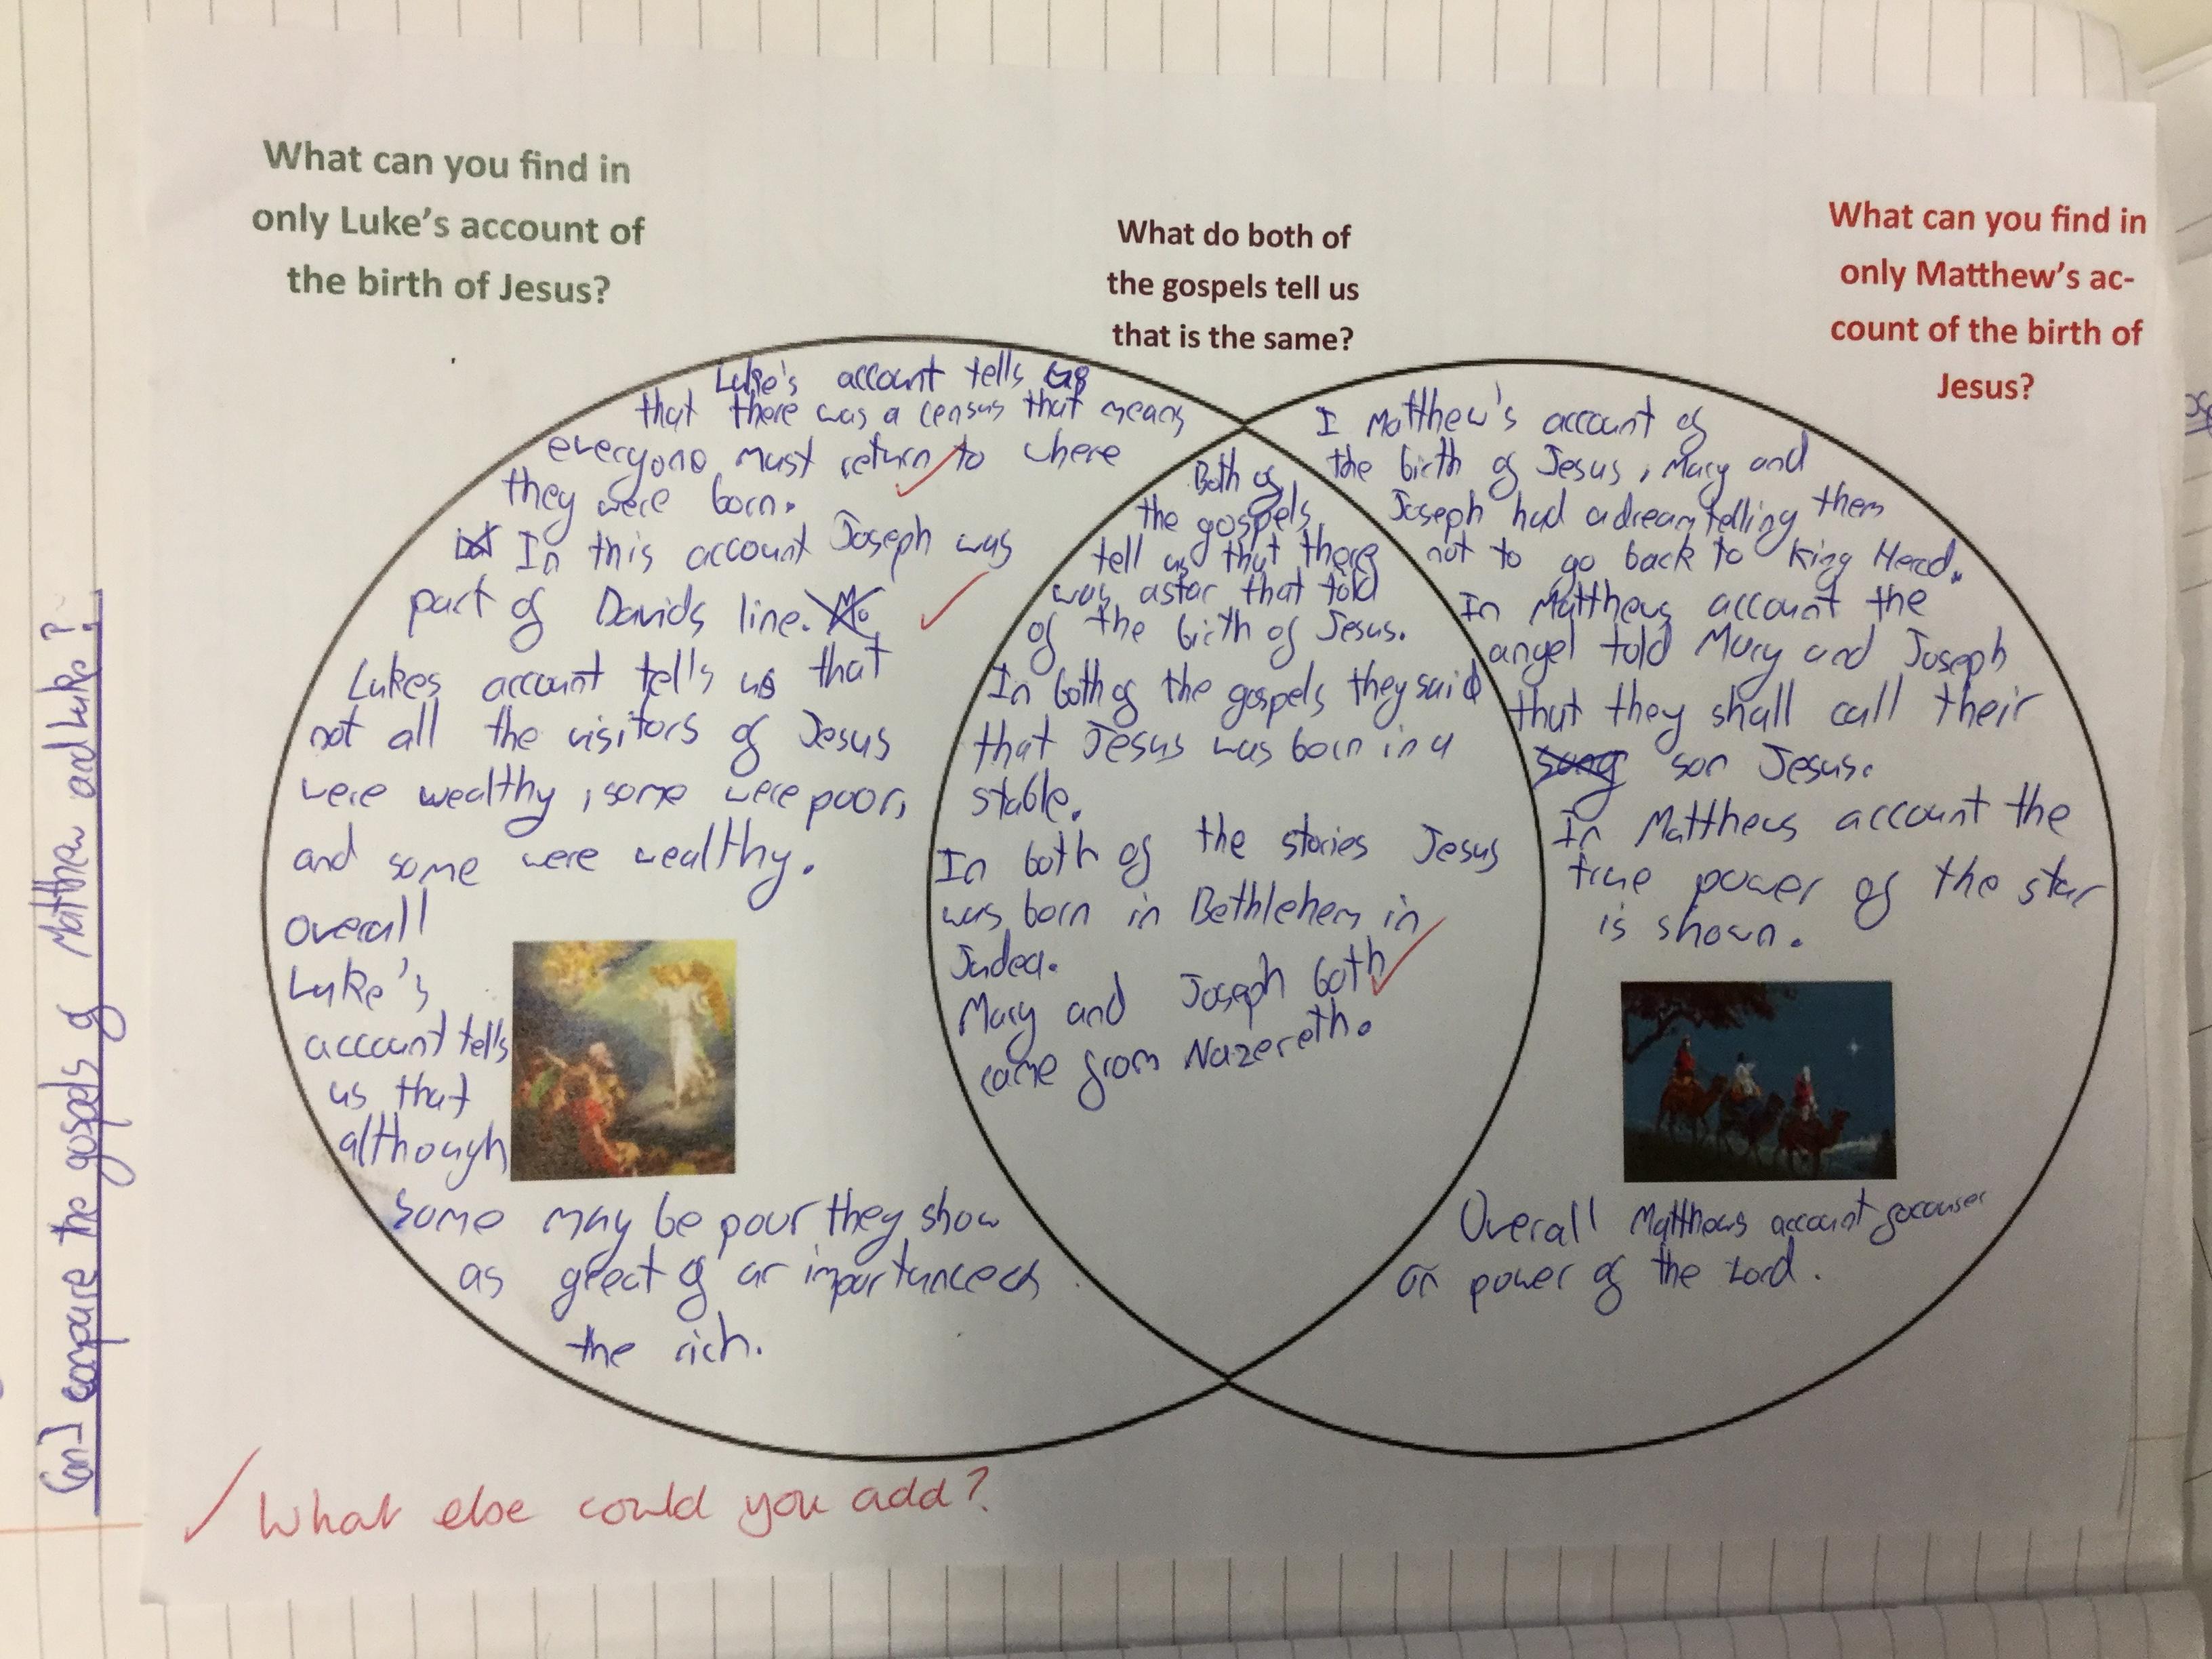 Can I compare the gospels of Matthew and Luke?
What can you find in
only Luke's account of
the birth of Jesus?
What do both of
the gospels tell us
that is the same?
What can you find in
only Matthew's ac-
count of the birth of
Jesus?
Luke's account tells us
that there was a census that means
everyone must return to where
they were born.
In this account Joseph was
part of Davids line.
Lukes account tell's us that
not all the visitors of Jesus
were wealthy, some were poor,
and some were wealthy.
Overall
Luke's
account tells
us that
although
some may be pour they show
as great of an importance as
the rich.
Both of
the gospels
tell us that there
was a star that told
of the birth of Jesus.
In both of the gospels they said
that Jesus was born in a
stable.
In both of the stories Jesus
was born in Bethlehem in
Judea.
Mary and Joseph both
came from Nazereth.
I Matthew's account of
the birth of Jesus, Mary and
Joseph had a dream telling them
not to go back to King Herod.
In Matthews account the
angel told Mary and Joseph
that they shall call their
song son Jesus.
In Matthews account the
true power of the star
is shown.
Overall Matthews account focuses
on power of the Lord.
What else could you add?